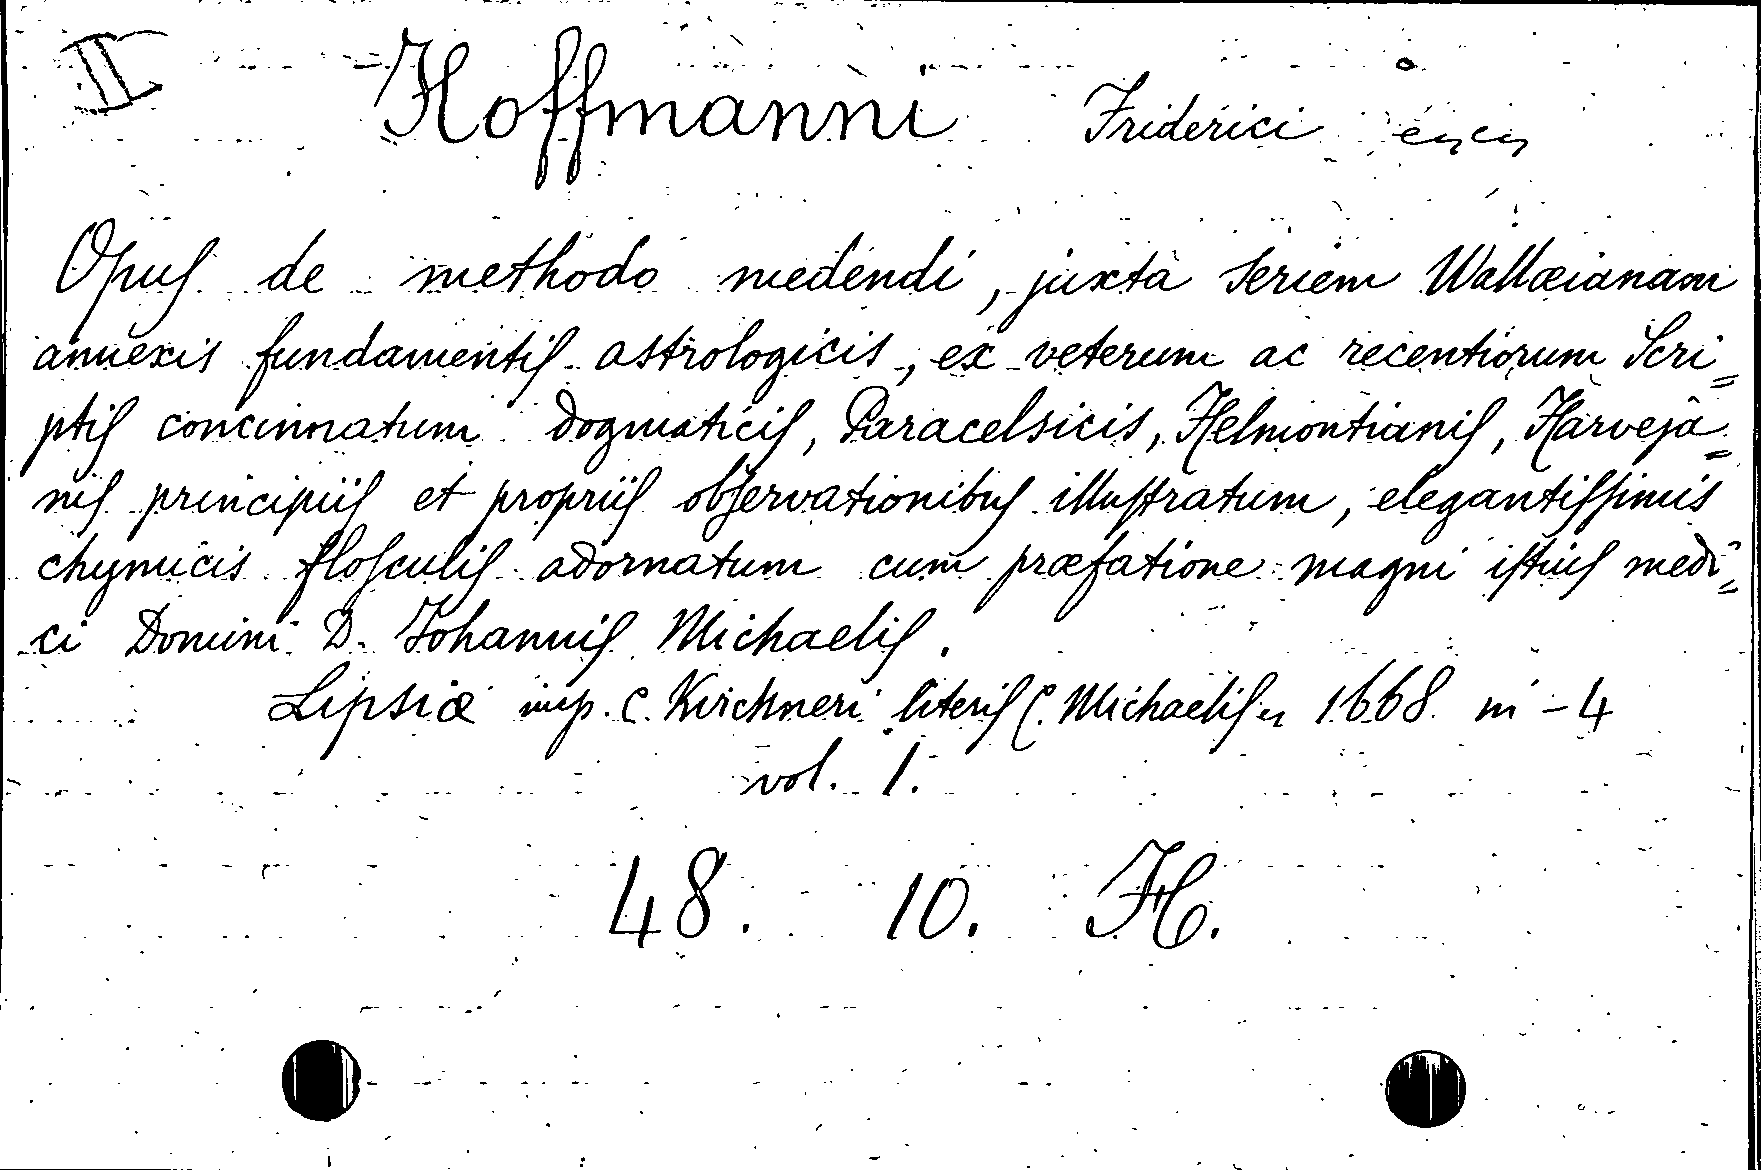 II Hoffmanni Friderici
Opus de methodo medendi, juxta seriem Wallæianam
annexis fundamentis astrologicis, ex veterum ac recentiorum Scri=
ptis concinnatum dogmaticis, Paracelsicis, Helmontianis, Harveja=
nis principiis et propriis observationibus illustratum, elegantissimis
chymicis flosculis adornatum cum præfatione magni istius medi=
ci Domini D. Johannis Michaelis.
Lipsiæ imp. C. Kirchneri literis C. Michaelis 1668. in -4
vol. 1.
48. 10. H.